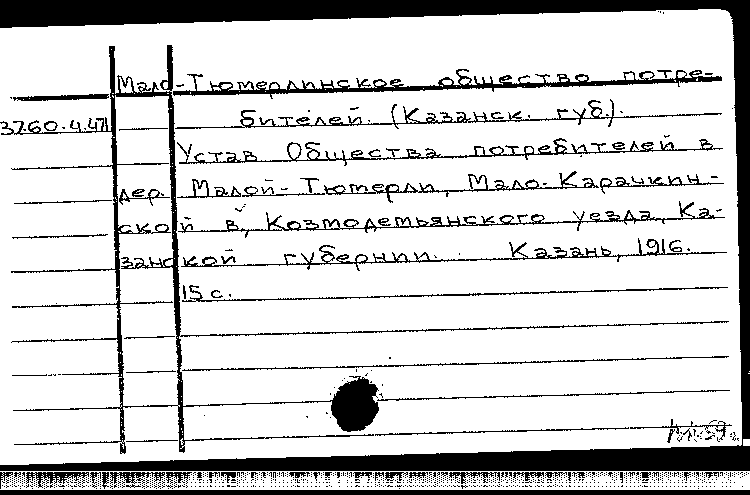 Мало-Тюмерлинское общество потре-
бителей. (Казанск. губ.).
3760.4.471
Устав Общества потребителей в
дер. Малой-Тюмерли, Мало-Карачкин-
ской в., Козмодемьянского уезда, Ка-
занской губернии. Казань, 1916.
15 с.